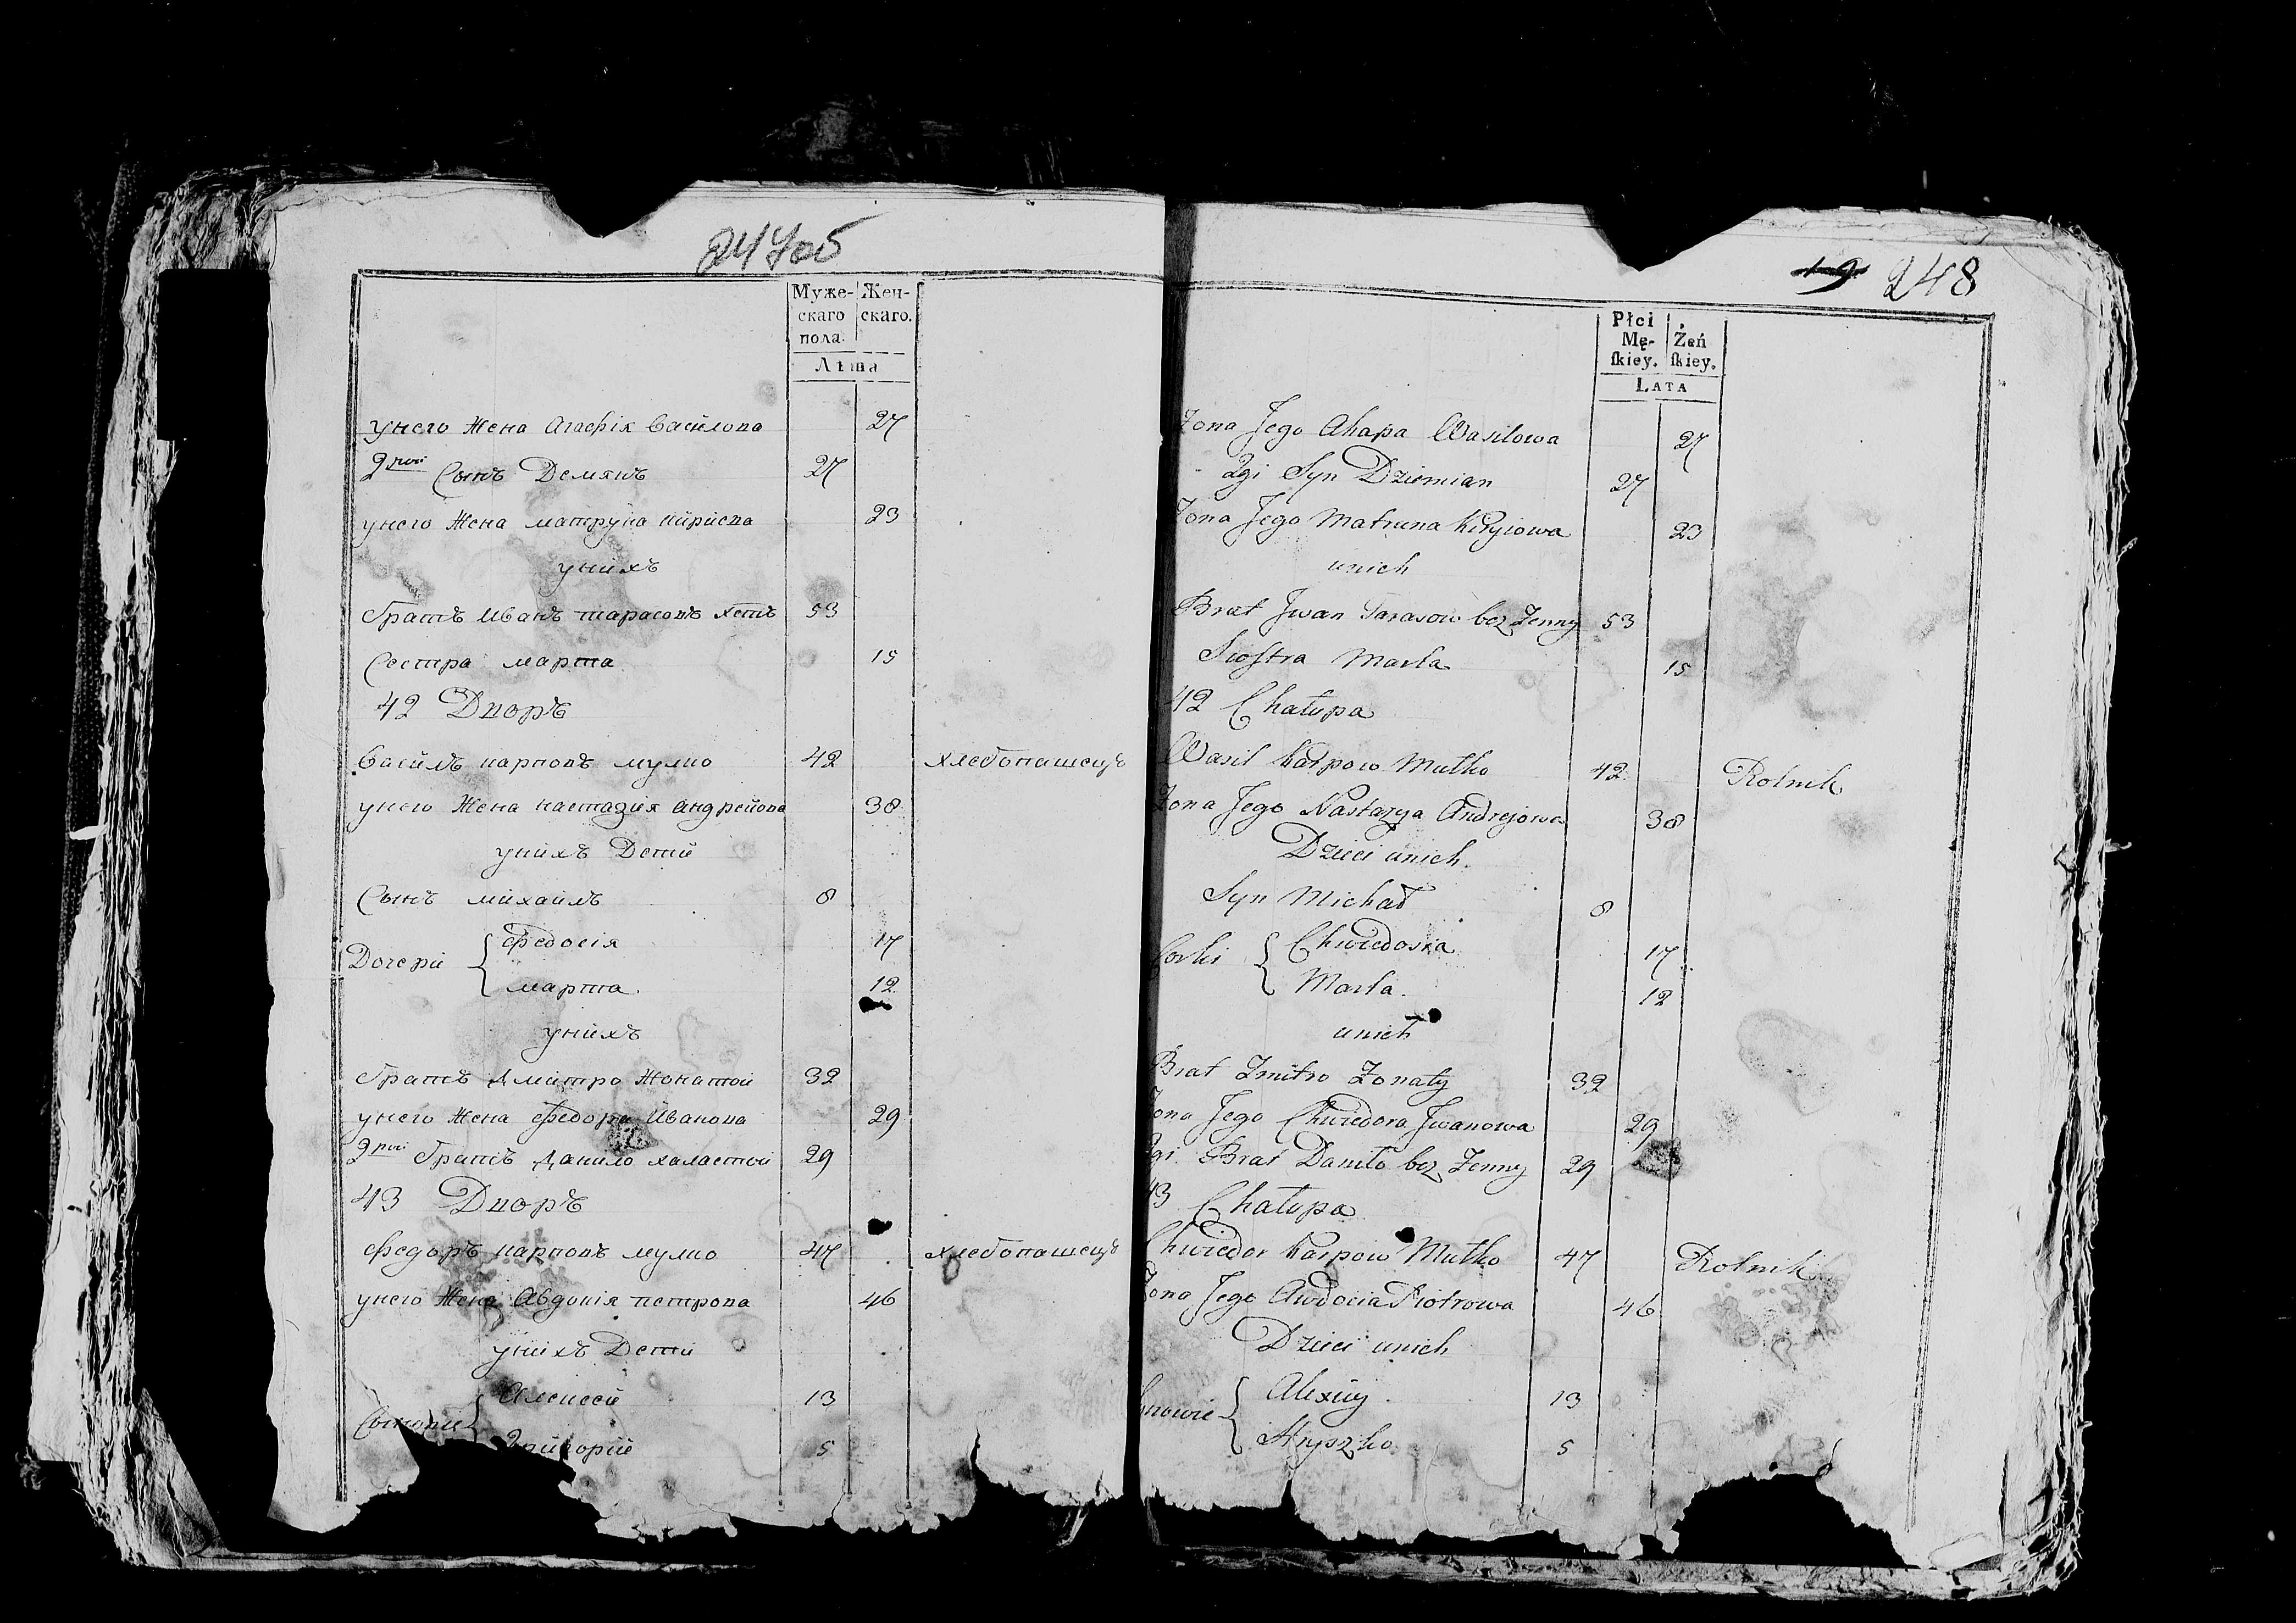 247об
Муже-
скаго
пола.
Жен-
скаго.
Лѣта
унего Жена Агафія Василова 27
2гой Сынъ Демянъ 27
унего Жена матруна кириева 23
унихъ
братъ Иванъ тарасовъ 53
Сестра марта 15
42 Дворъ
Василъ карповъ мулко 42 хлебопашецъ
унего Жена настазія андрейова 38
унихъ Дети
Сынъ михаилъ 8
Дочери { федосія 17
марта. 12
унихъ
братъ дмитро Жонатой 32
унего Жена федора Иванова 29
2гой братъ данило халастой 29
43 Дворъ
федоръ карповъ мулко 47 хлебопашецъ
унего Жена Авдокія петрова 46
унихъ Дети
Сыновие { Алексей 13
Григорий 5
19 248
Płci
Mę-
ſkiey.
Żeń
ſkiey.
LATA
Zona Jego Ahapa Wasilowa 27
2gi Syn Dziemian 27
Zona Jego Matruna Kiryiowa 23
unich
Brat Jwan Tarasow bez Zenny 53
Siostra Marta 15
42 Chałupa
Wasil Karpow Mułko 42 Rolnik
Zona Jego Nastazya Andrejowa 38
Dzieci unich.
Syn Michał 8
Corki { Chwiedosia 17
Marta. 12
unich
Brat Zmitro Zonaty 32
Zona Jego Chwiedora Jwanowa 29
2gi Brat Daniło bez Zenny 29
43 Chałupa
Chwiedor Karpow Mułko 47 Rolnik
Zona Jego Awdocia Piotrowa 46
Dzieci unich
Synowie { Alexiey 13
Hryszko 5